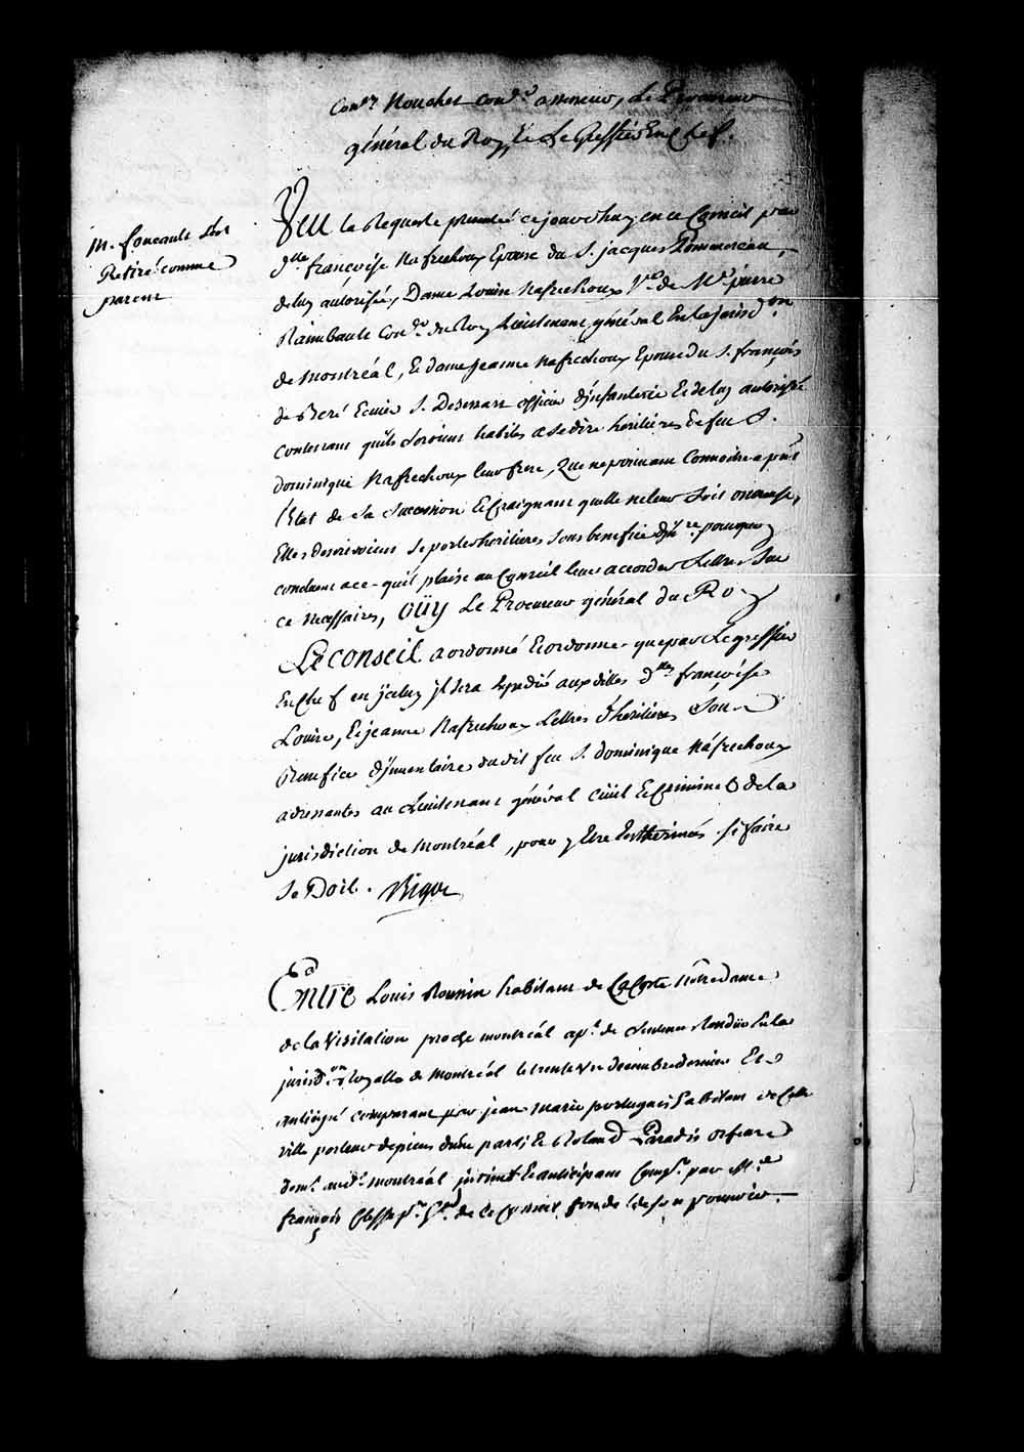 Con.er Nouchet Con.er assesseur, Le Procureur
général du Roy, Et Le Greffier En Chef.
M. foucault s'est
Retiré comme
parent
Veu la Requeste presentée ce jourdhuy en ce Conseil par
d.lle francoise Nafrechoux Epouse du S. jacques Pommereau,
de luy autorisée, Dame Louise Nafrechoux V.e de M.e pierre
Raimbault Con.er du Roy Lieutenant général En la jurisd.on
de Montréal, Et dame Jeanne Nafrechoux Epouse du S. françois
de Beré Ecuier S. Desessars officier d'jnfanterie Et de luy autorisée
contenant qu'ils seroient habiles a se dire heritieres de feu S.
dominique Nafrechoux leur frere, Que ne pouvant Connoitre a p.nt
l'Etat de sa succession Et Craignant quelle ne leur soit onereuse,
Elles desireroient se porter heritieres sous benefice d'jn.re pourquoy
concluent a ce qu'il plaise au Conseil leur accorder Lettres sur
ce necessaires, Oüy Le Procureur général du Roy
Le Conseil a ordonné Et ordonne que par Le greffier
En Chef en jceluy jl sera Expedié aux dittes d.lles françoise
Louise, Et jeanne Nafrechoux Lettres d'heritieres sous
Benefice d'jnventaire dudit feu S. dominique Nafrechoux
adressantes au Lieutenant général Civil Et Criminel de la
jurisdiction de Montréal, pour y Etre Enthérinés si faire
se Doit. Bigot
Entre Louis Roussin habitant de La Coste Nôtre dame
de la Visitation proche montréal ap.t de sentence Rendüe En la
jurisd.on Royalle de Montréal le trente un decembre dernier Et
anticipé comparant par jean Marie portugais habitant de Cette
ville porteur de pieces d'une part; Et Roland Paradis orfevre
dem.t aud.t montréal jntimé Et anticipant Comp.t par M.e
françois Clesse p.r de Ce Conseil fondé de son pouvoir.